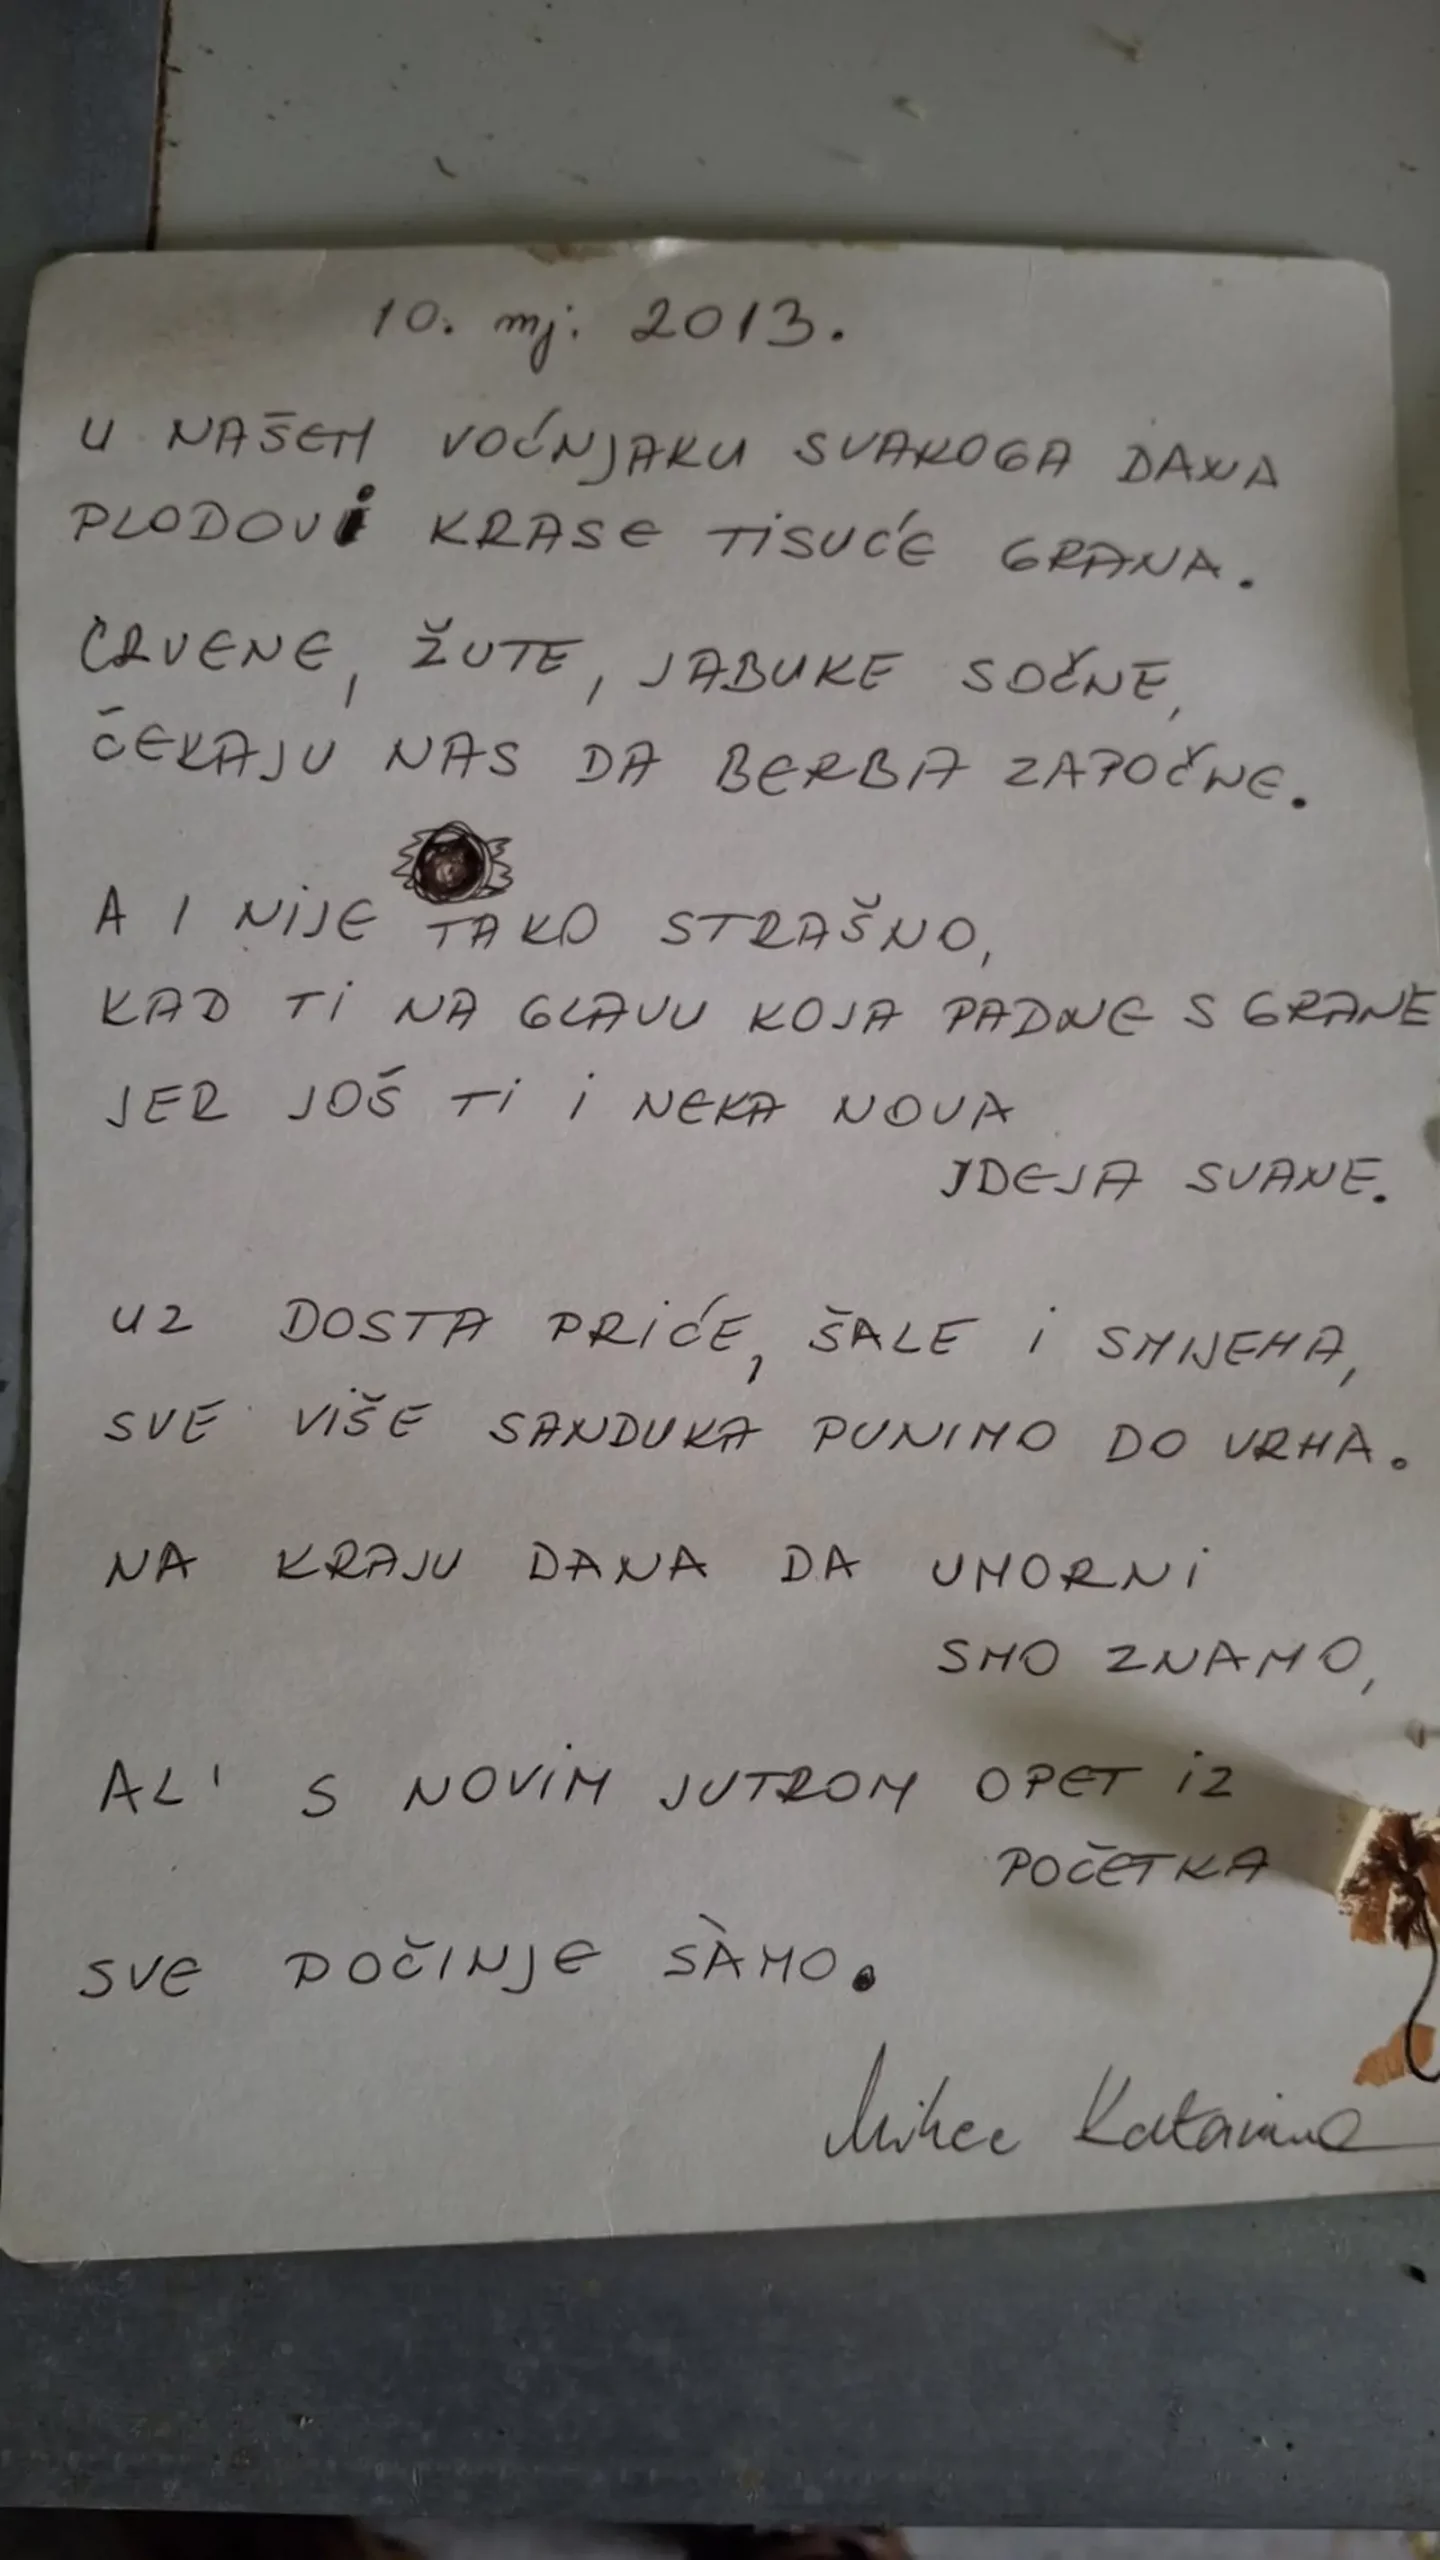 10. mj. 2013.
U NAŠEM VOĆNJAKU SVAKOGA DANA
PLODOVI KRASE TISUĆE GRANA.
CRVENE, ŽUTE, JABUKE SOČNE,
ČEKAJU NAS DA BERBA ZAPOČNE.
A I NIJE TAKO STRAŠNO,
KAD TI NA GLAVU KOJA PADNE S GRANE
JER JOŠ TI I NEKA NOVA
IDEJA SVANE.
UZ DOSTA PRIĆE, ŠALE I SMIJEHA,
SVE VIŠE SANDUKA PUNIMO DO VRHA.
NA KRAJU DANA DA UMORNI
SMO ZNAMO,
AL' S NOVIM JUTROM OPET IZ
POČETKA
SVE POČINJE SÀMO.
Katarina